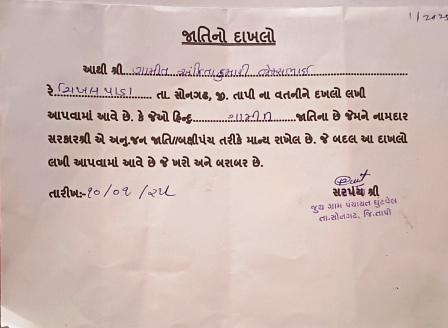 1/2025
જાતિનો દાખલો
આથી શ્રી ગામીત અંકિતાકુમારી
રે. ચિખલપાડા તા. સોનગઢ, જી. તાપી ના વતનીને દાખલો લખી
આપવામાં આવે છે. કે જેઓ હિન્દુ ગામીત જાતિના છે જેમને નામદાર
સરકારશ્રી એ અનુ.જન જાતિ/બક્ષીપંચ તરીકે માન્ય રાખેલ છે. જે બદલ આ દાખલો
લખી આપવામાં આવે છે જે ખરો અને બરાબર છે.
તારીખ:-૧૦/૦૧/૨૫
સરપંચ શ્રી
જુથ ગ્રામ પંચાયત ઘુંટવેલ
તા.સોનગઢ, જિ.તાપી